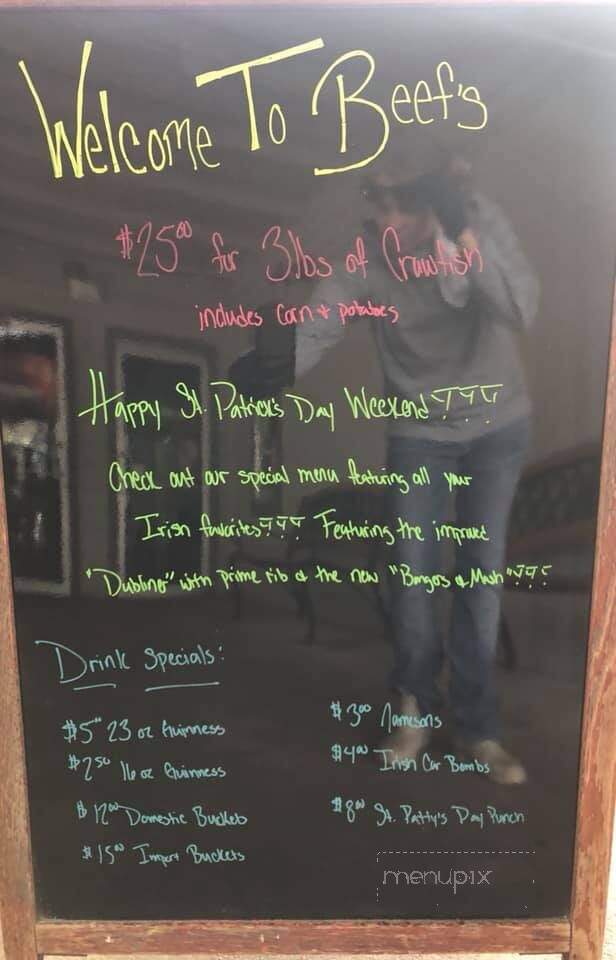 Welcome To Beef's
$25.00 for 3lbs of Crawfish
includes corn & potatoes
Happy St. Patrick's Day Weekend!!!
Check out our special menu featuring all your
Irish favorites!!! Featuring the improved
"Dubliner" with prime rib & the new "Bangers & Mash"!!!
Drink Specials:
$5.00 23 oz Guinness
$2.50 16 oz Guinness
$12.00 Domestic Buckets
$15.00 Import Buckets
$3.00 Jamesons
$4.00 Irish Car Bombs
$8.00 St. Patty's Day Punch
menupix